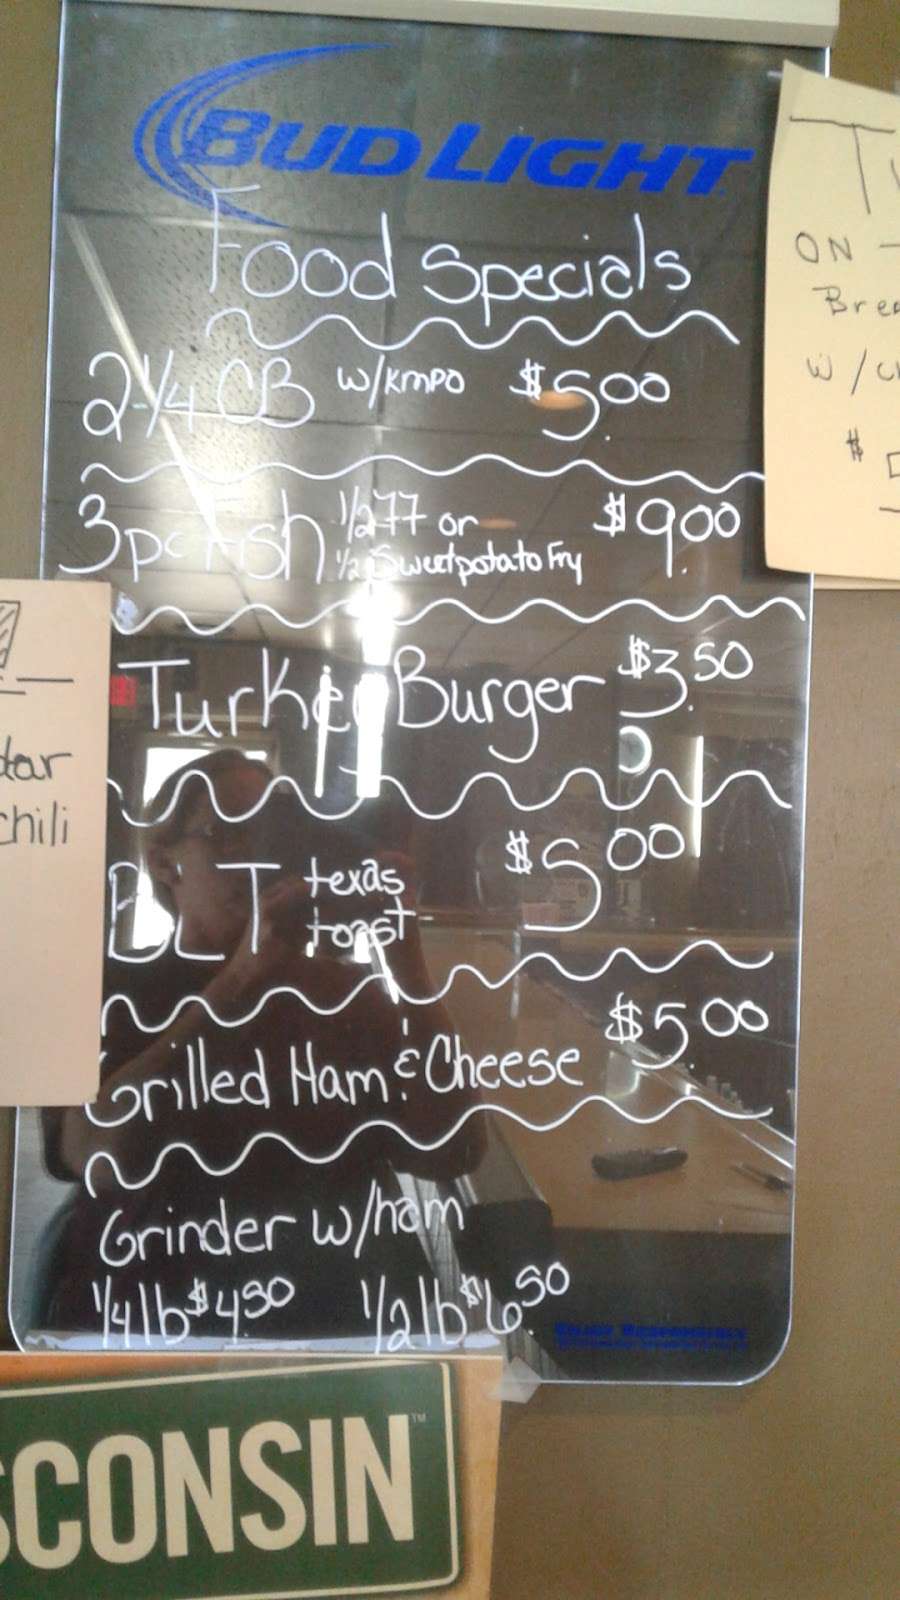 BUD LIGHT
Food Specials
2 1/4 CB w/KMPO $5.00
3pc Fish 1/2 TT or $9.00
1/2 Sweet potato Fry
Turkey Burger $3.50
BLT texas toast $5.00
Grilled Ham & Cheese $5.00
Grinder w/ham
1/4 lb $4.50 1/2 lb $6.50
ENJOY RESPONSIBLY
ON
W/
$
dar
chili
SCONSIN™